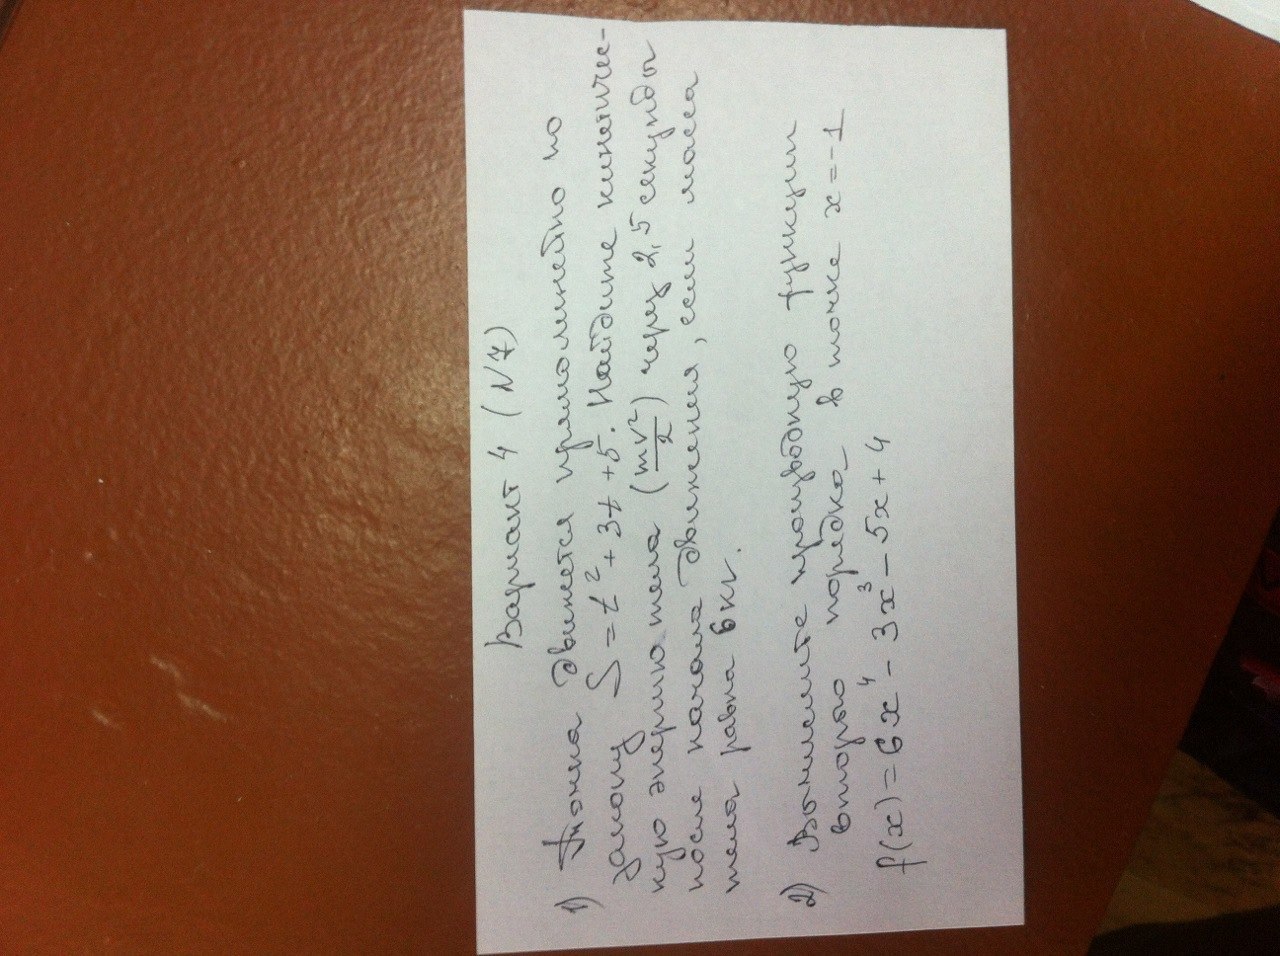 Вариант 4 (N7)
1) Точка движется прямолинейно по
закону S = t² + 3t + 5. Найдите кинетичес-
кую энергию тела (mv²/2) через 2,5 секунды
после начала движения, если масса
тела равна 6 кг.
2) Вычислите производную функции
второго порядка в точке x = -1
f(x) = 6x⁴ - 3x³ - 5x + 4